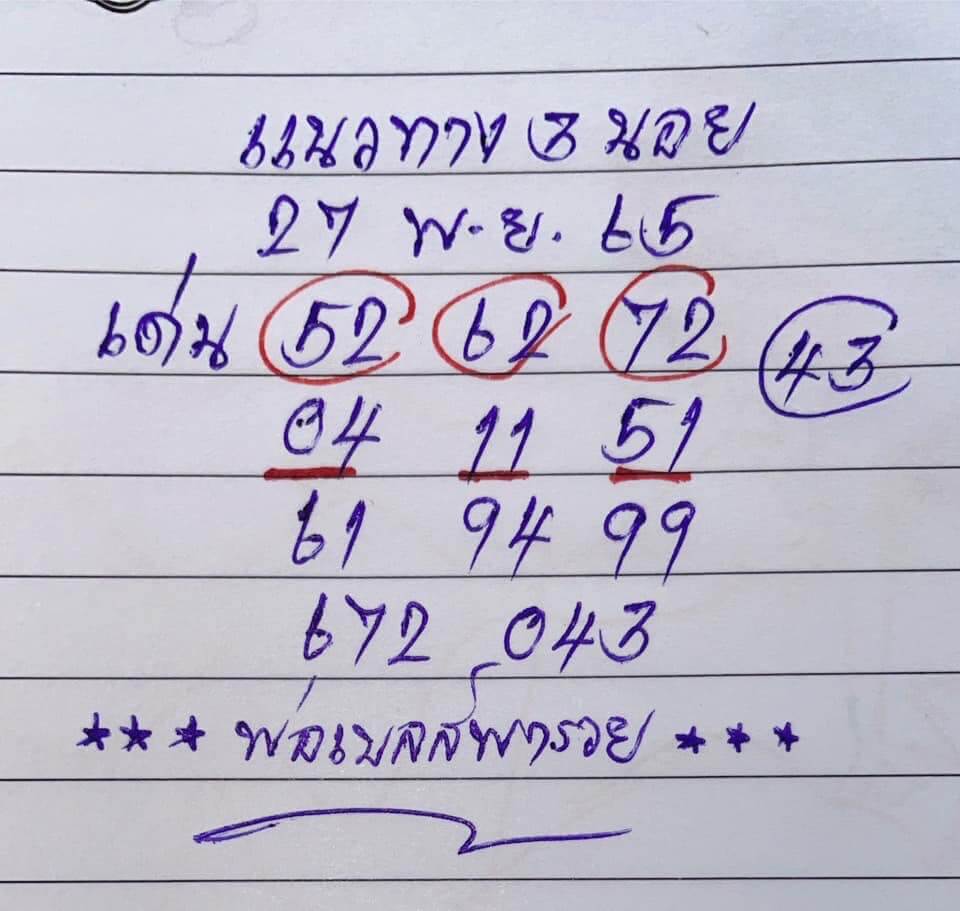 แนวทาง ฮ นอย
27 พ.ย. 65
เด่น 52 62 72 43
04 11 51
61 94 99
672 043
*** พ่อเบลล์พารวย ***